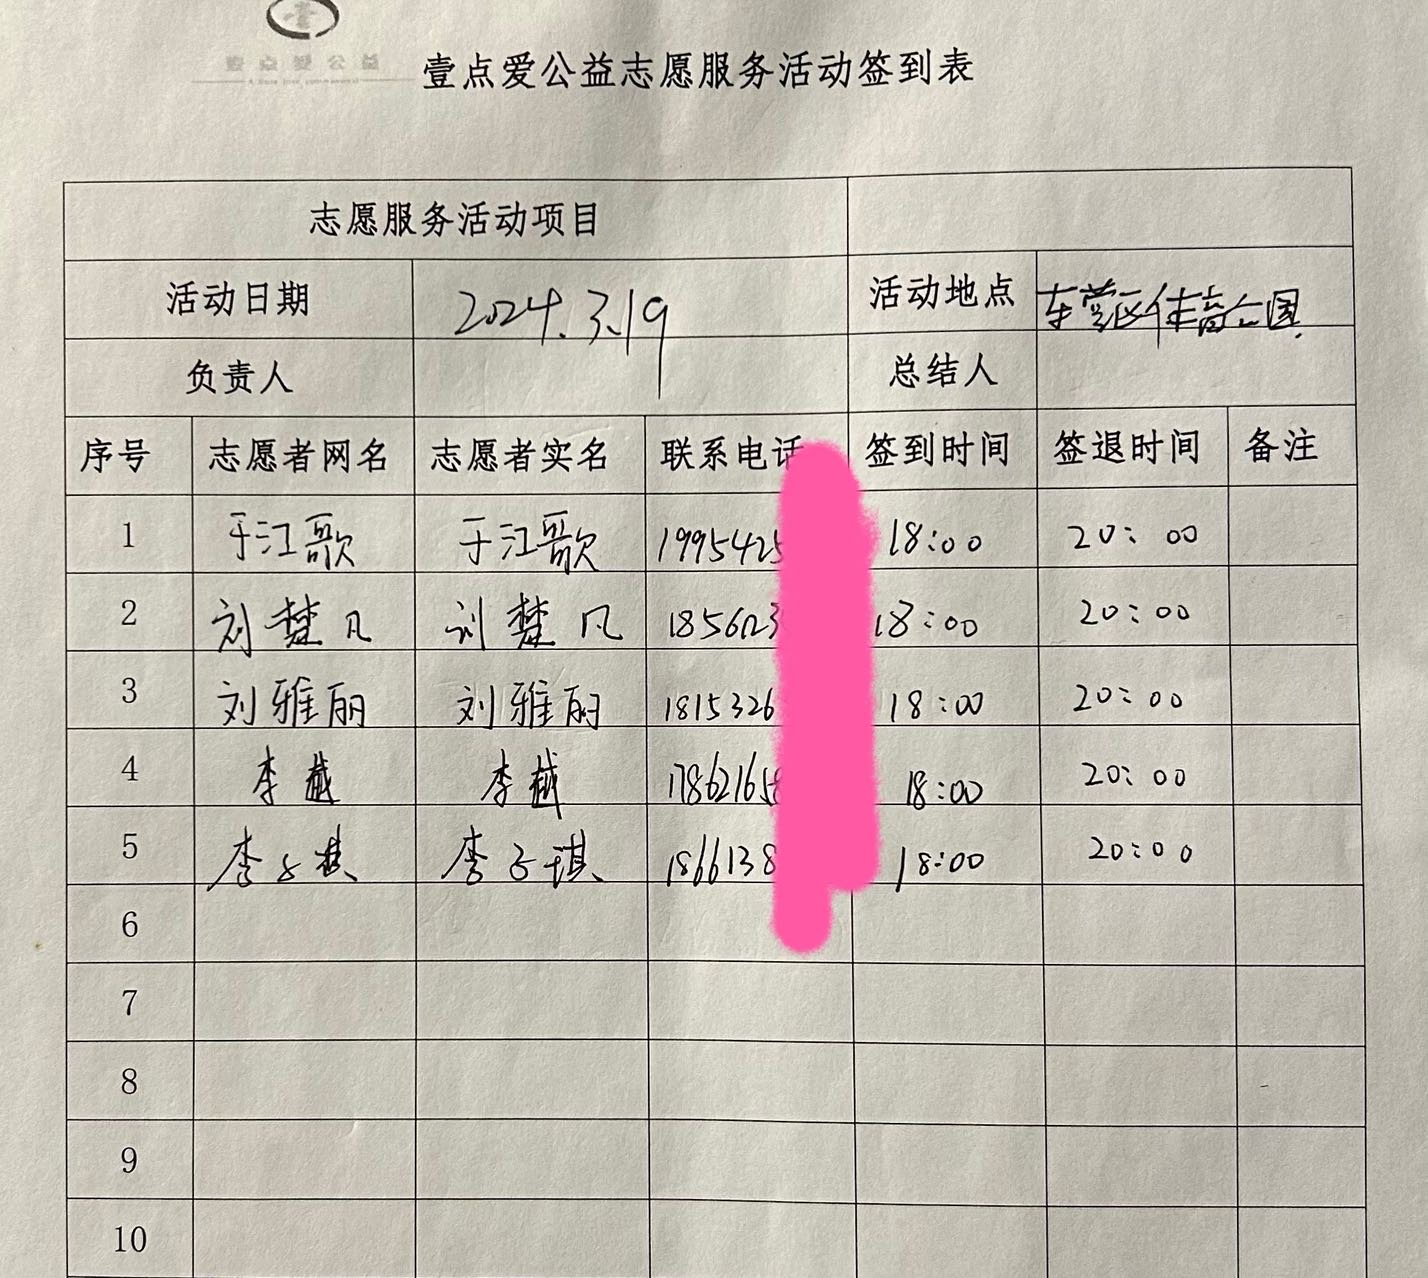 壹点爱公益
壹点爱公益志愿服务活动签到表
志愿服务活动项目
活动日期 2024.3.19 活动地点 东营区体育公园
负责人 总结人
序号 志愿者网名 志愿者实名 联系电话 签到时间 签退时间 备注
1 于江歌 于江歌 1995425 18:00 20:00
2 刘楚凡 刘楚凡 1856123 18:00 20:00
3 刘雅丽 刘雅丽 1815326 18:00 20:00
4 李越 李越 17862165 18:00 20:00
5 李子琪 李子琪 1866138 18:00 20:00
6
7
8
9
10